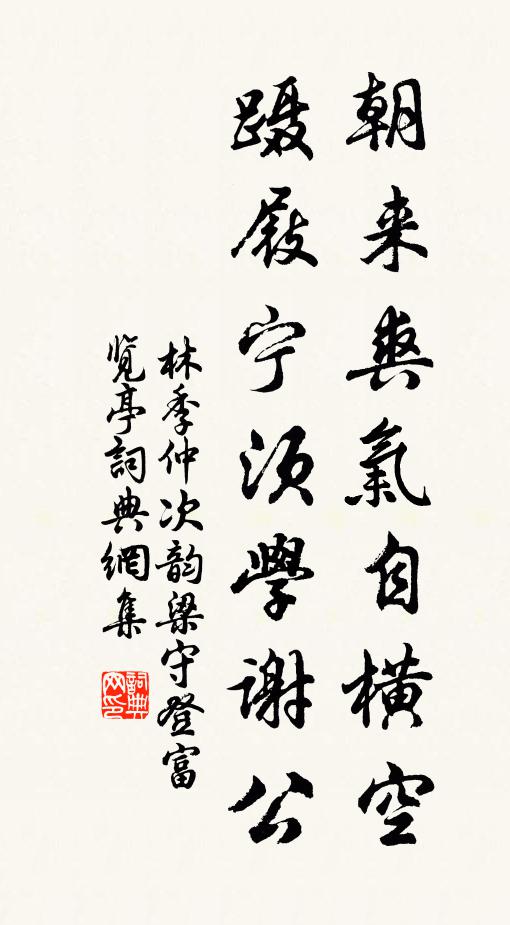 朝来爽氣自橫空
蹑屐宁須學谢公
林季仲次韵梁守登富
覽亭詞典網集
詞典网印